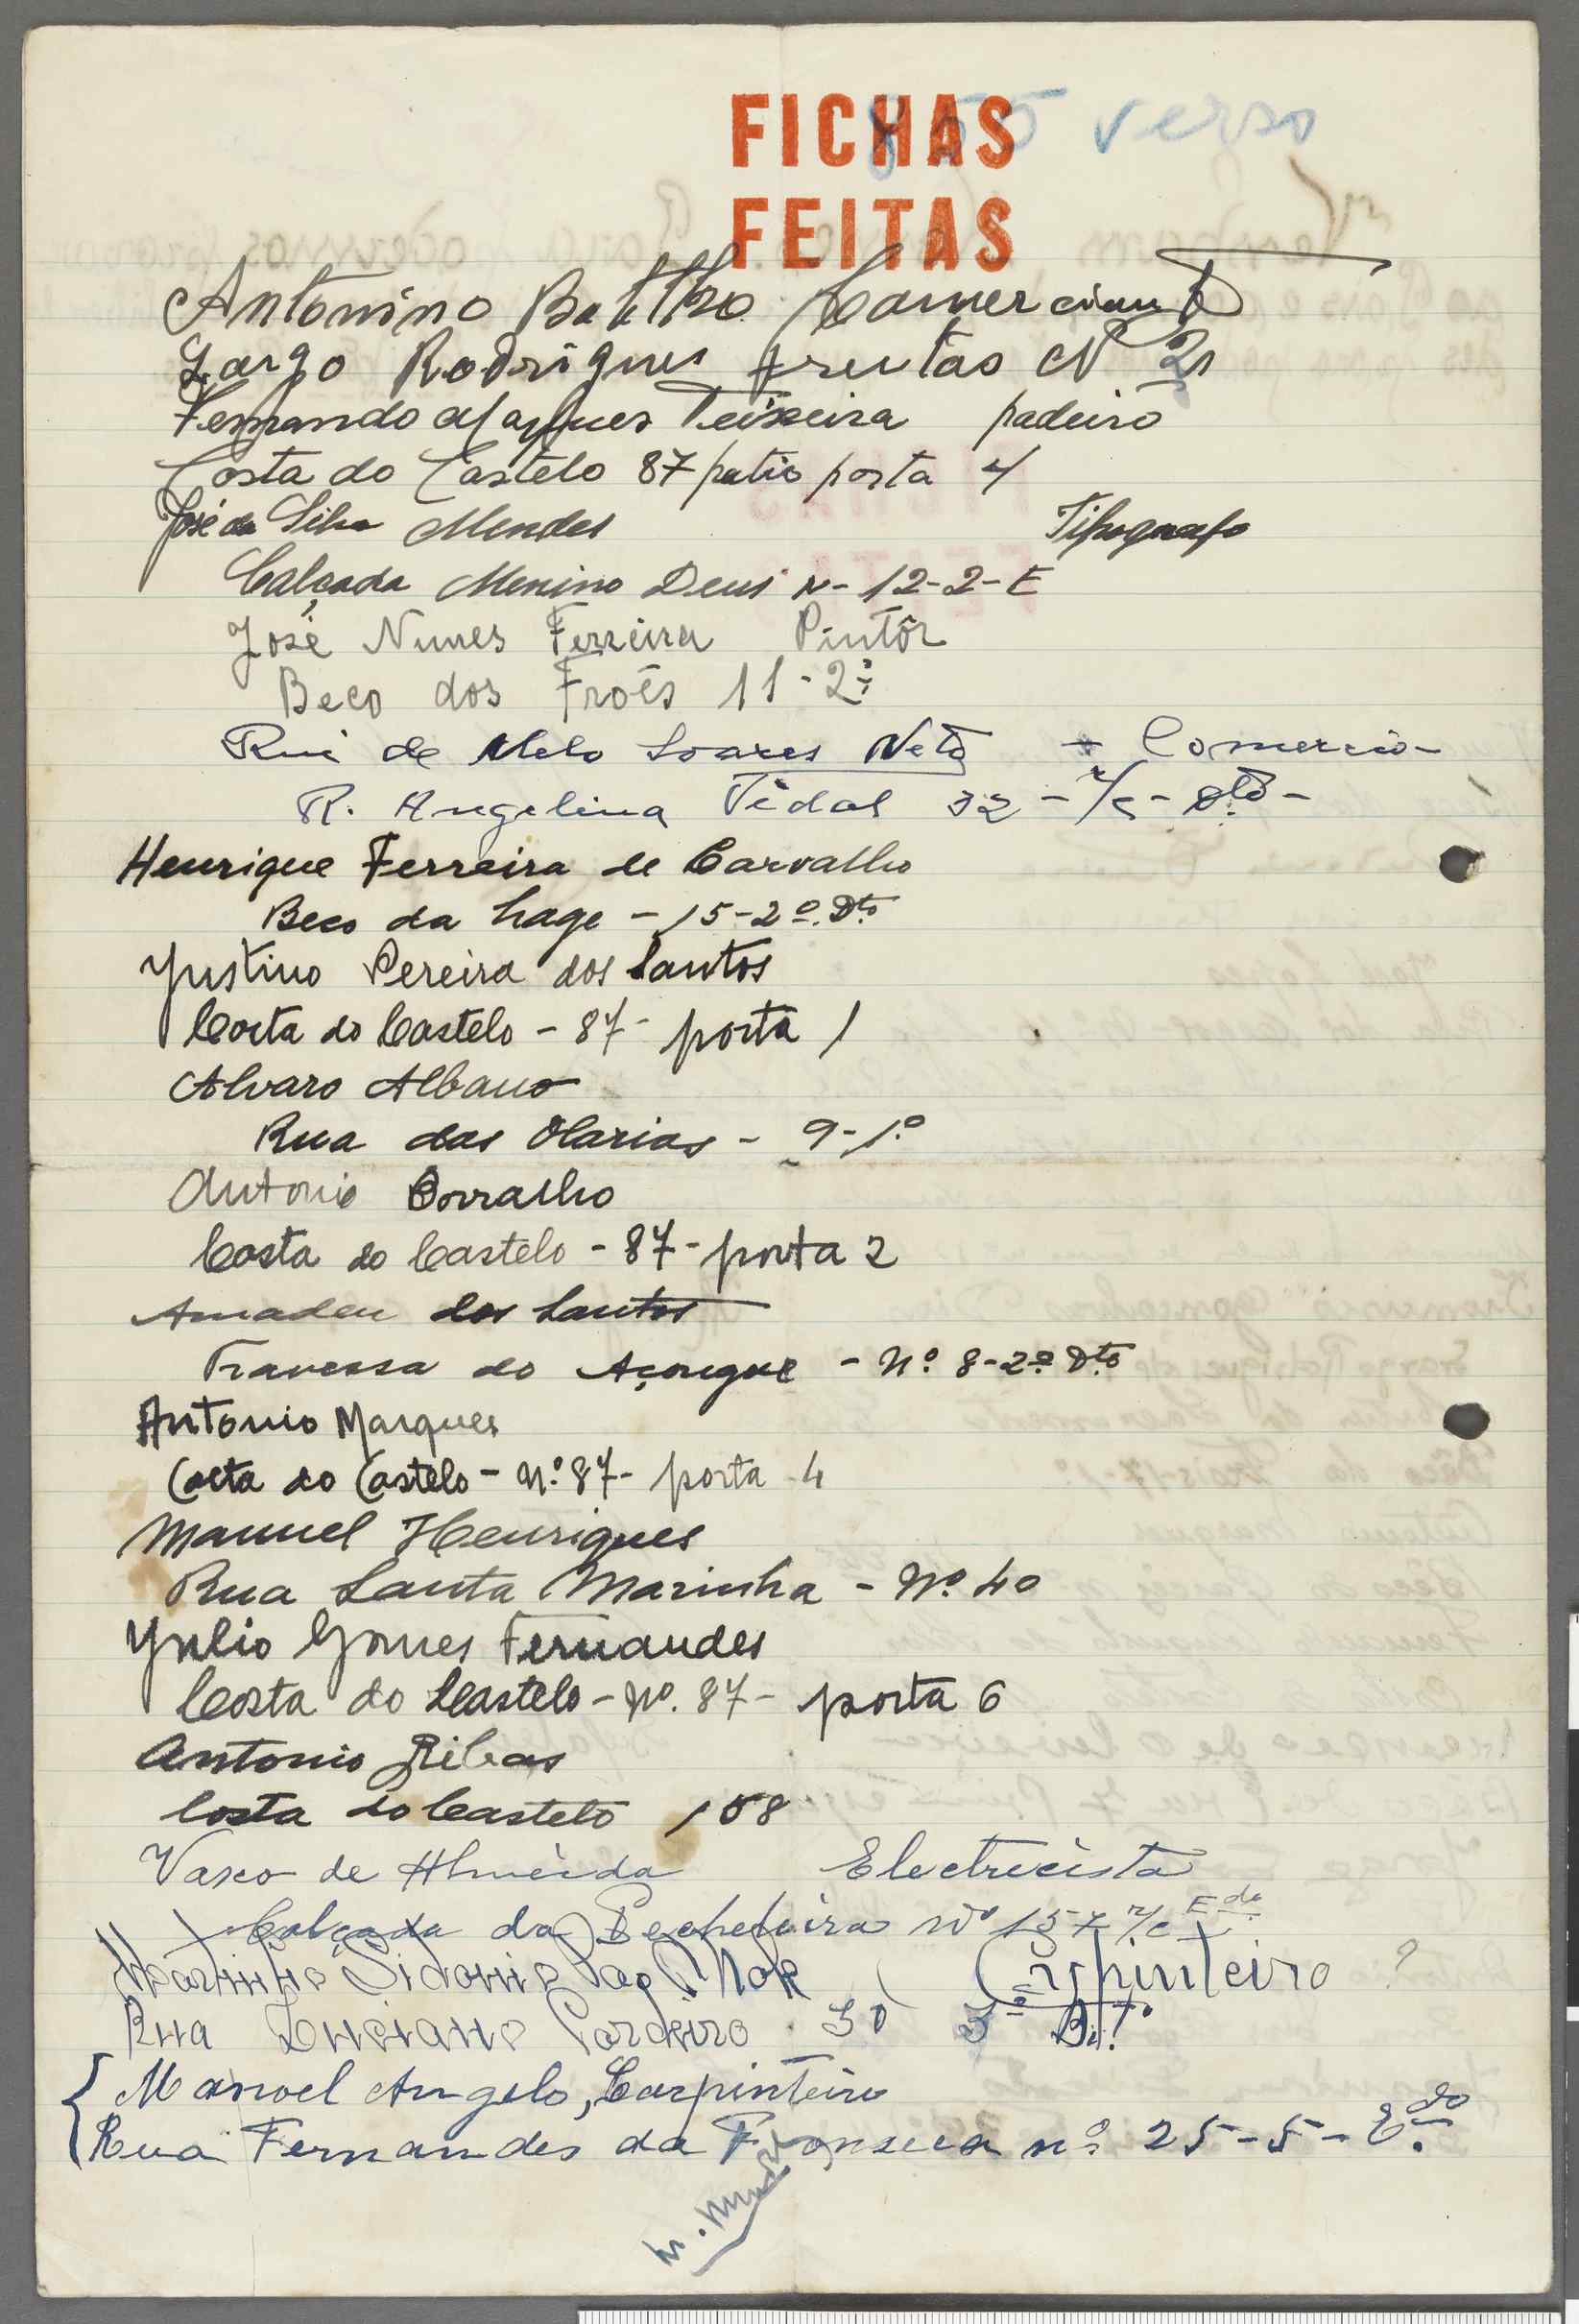 855 verso
FICHAS
FEITAS
Antonino Comerciante
Largo Rodrigues Freitas Nº 21
Fernando Marques Teixeira padeiro
Costa do Castelo 87 patio porta 4
José da Silva Mendes Tipografo
Calçada Menino Deus N- 12-2-E
José Nunes Ferreira Pintôr
Beco dos Froes 11-2º
Rui de Melo Soares Neto - Comercio -
R. Angelina Vidal 32 - r/c - Dtº -
Henrique Ferreira de Carvalho
Beco da Lage - 15-2º Dtº
Justino Pereira dos Santos
Costa do Castelo - 87 - porta 1
Alvaro Albano
Rua das Olarias - 9-1º
Antonio Corralho
Costa do Castelo - 87 - porta 2
Amadeu dos Santos
Travessa do Açougue - Nº 8-2º Dtº
Antonio Marques
Costa do Castelo - Nº 87 - porta 4
Manuel Henriques
Rua Santa Marinha - Nº 40
Julio Gomes Fernandes
Costa do Castelo - Nº. 87 - porta 6
Antonio Ribas
Costa do Castelo 158
Vasco de Almeida Electricista
Calçada da Nº 157 r/c Edo
Martinho Sidonio Carpinteiro ?
Rua Luciano Cordeiro 30 3º Dtº
Manoel Angelo, Carpinteiro
Rua Fernandes da Fonseca nº 25-5-Edo